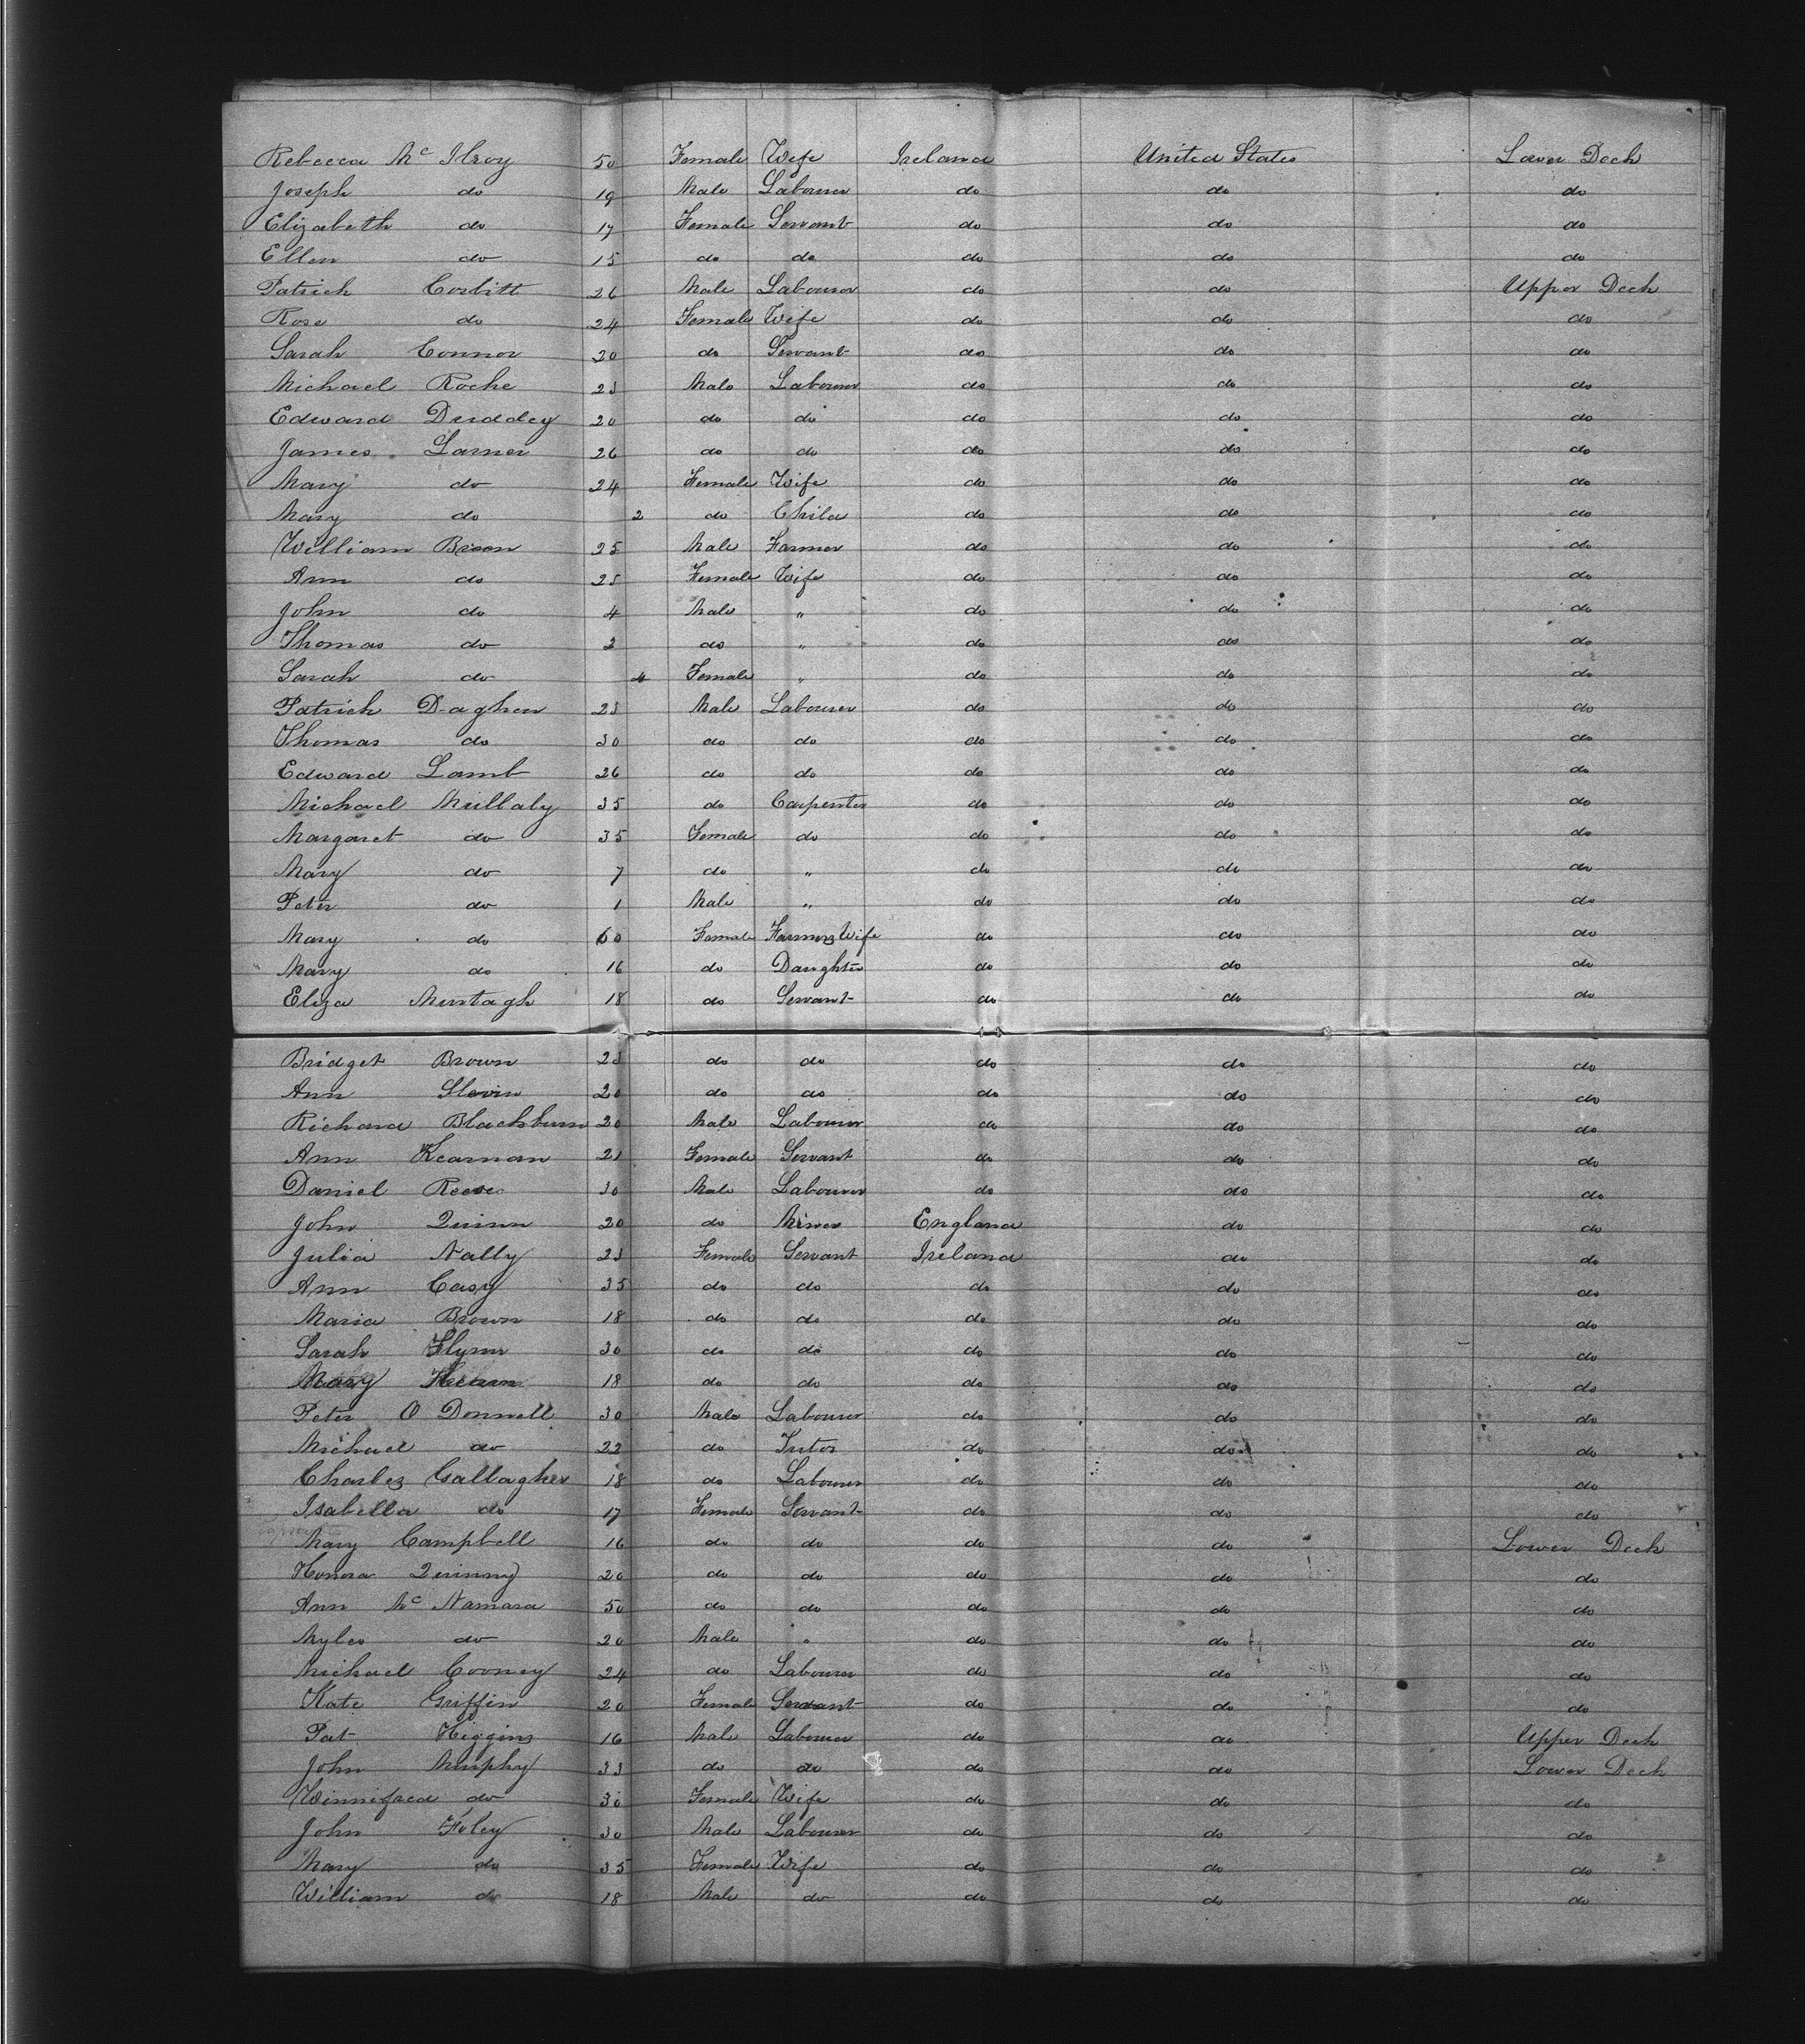 Rebecca Mc Ilroy 50 Female Wife Ireland United States Lower Deck
Joseph do 19 Male Labourer do do do
Elizabeth do 17 Female Servant do do do
Ellen do 15 do do do do do
Patrick Corbitt 26 Male Labourer do do Upper Deck
Rose do 24 Female Wife do do do
Sarah Connor 20 do Servant do do do
Michael Roche 23 Male Labourer do do do
Edward Duddey 20 do do do do do
James Larner 26 do do do do do
Mary do 24 Female Wife do do do
Mary do 2 do Child do do do
William 25 Male Farmer do do do
Ann do 25 Female Wife do do do
John do 4 Male " do do do
Thomas do 2 do " do do do
Sarah do Female " do do do
Patrick Daghen 23 Male Labourer do do do
Thomas do 30 do do do do do
Edward Lamb 26 do do do do do
Michael Mullaly 35 do Carpenter do do do
Margaret do 35 Female do do do do
Mary do 7 do " do do do
Peter do 1 Male " do do do
Mary do 60 Female Farmers Wife do do do
Mary do 16 do Daughter do do do
Eliza Murtagh 18 do Servant do do do
Bridget Brown 23 do do do do do
Ann Slevin 20 do do do do do
Richard Blackburn 20 Male Labourer do do do
Ann Kearnan 21 Female Servant do do do
Daniel 30 Male Labourer do do do
John Quinn 20 do Miner England do do
Julia Nally 23 Female Servant Ireland do do
Ann Casy 35 do do do do do
Maria Brown 18 do do do do do
Sarah Flynn 30 do do do do do
Mary 18 do do do do do
Peter O Donnell 30 Male Labourer do do do
Michael do 22 do Tutor do do do
Charles Gallagher 18 do Labourer do do do
Isabella do 17 Female Servant do do do
Mary Campbell 16 do do do do Lower Deck
Honora Quinny 20 do do do do do
Ann Mc Namara 50 do do do do do
Myles do 20 Male " do do do
Michael Cooney 24 do Labourer do do do
Kate Griffin 20 Female Servant do do do
Pat Higgins 16 Male Labourer do do Upper Deck
John Murphy 33 do do do do Lower Deck
Winnifred do 30 Female Wife do do do
John Foley 30 Male Labourer do do do
Mary do 35 Female Wife do do do
William do 18 Male do do do do